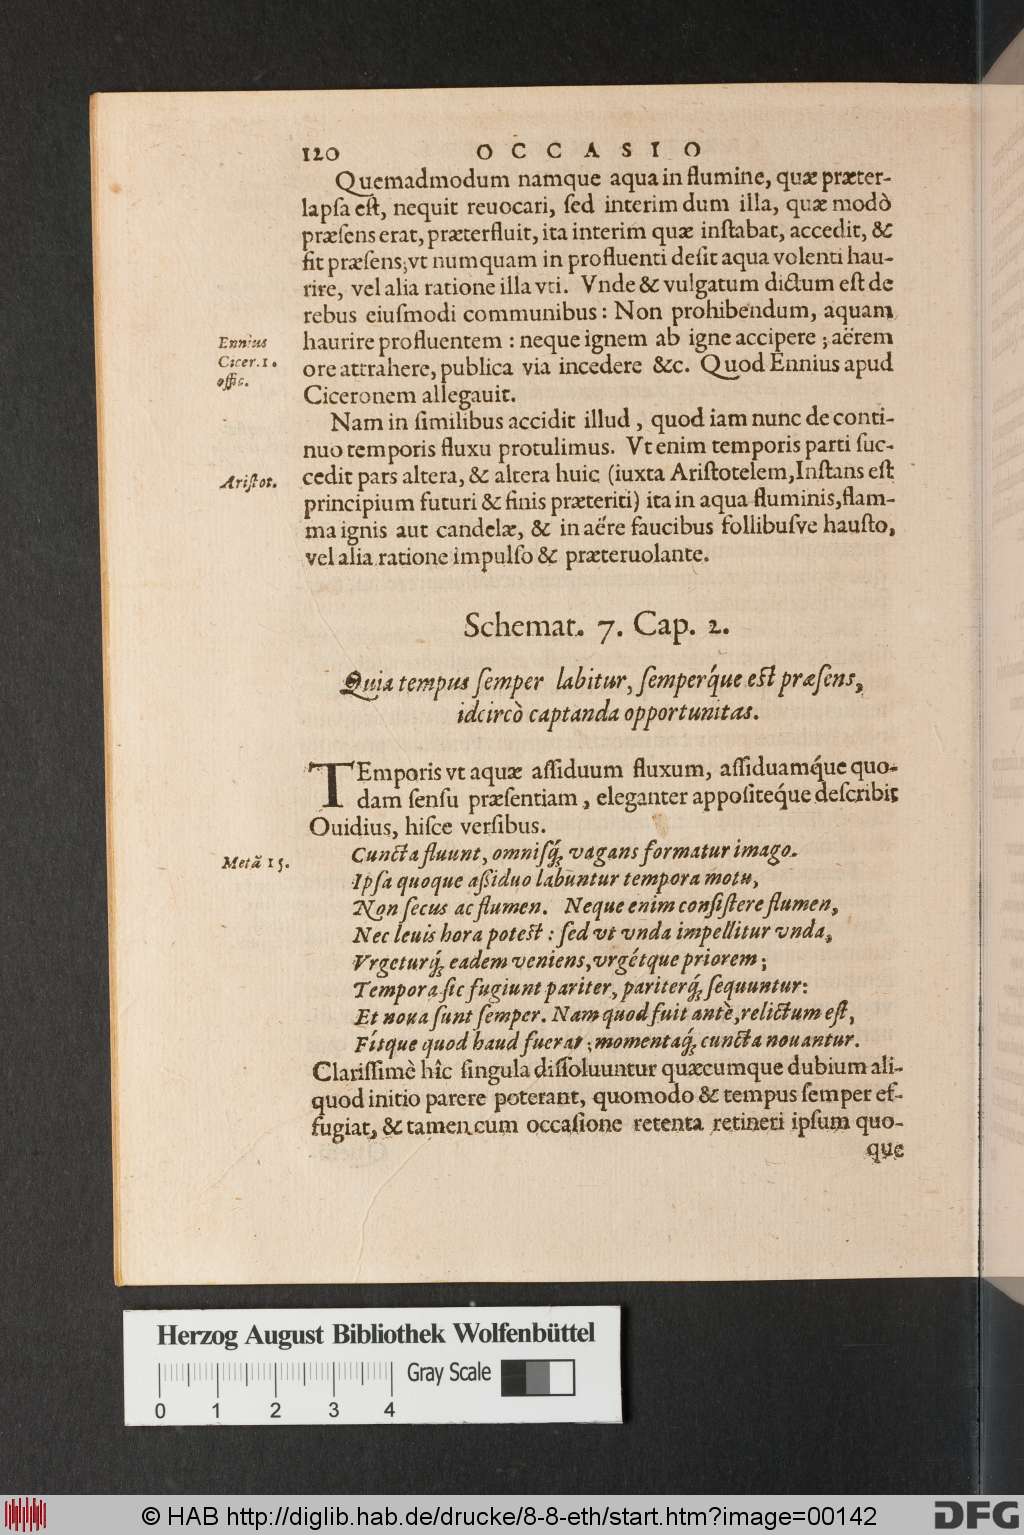 120 OCCASIO
Quemadmodum namque aqua in flumine, quæ præter-
lapſa eſt, nequit reuocari, ſed interim dum illa, quæ modò
præſens erat, præterfluit, ita interim quæ inſtabat, accedit, &
fit præſens; vt numquam in profluenti deſit aqua volenti hau-
rire, vel alia ratione illa vti. Vnde & vulgatum dictum eſt de
rebus eiuſmodi communibus: Non prohibendum, aquam
Ennius
haurire profluentem: neque ignem ab igne accipere; aërem
Cicer. 1.
ore attrahere, publica via incedere &c. Quod Ennius apud
offic.
Ciceronem allegauit.
Nam in ſimilibus accidit illud, quod iam nunc de conti-
nuo temporis fluxu protulimus. Vt enim temporis parti ſuc-
Ariſtot.
cedit pars altera, & altera huic (iuxta Ariſtotelem, Inſtans eſt
principium futuri & finis præteriti) ita in aqua fluminis, flam-
ma ignis aut candelæ, & in aëre faucibus follibuſve hauſto,
vel alia ratione impulſo & præteruolante.
Schemat. 7. Cap. 2.
Quia tempus ſemper labitur, ſemperq́ue eſt præſens,
idcircò captanda opportunitas.
TEmporis vt aquæ aſſiduum fluxum, aſſiduamq́ue quo-
dam ſenſu præſentiam, eleganter appoſiteq́ue deſcribit
Ouidius, hiſce verſibus.
Metā 15.
Cuncta fluunt, omniſq́; vagans formatur imago.
Ipſa quoque aſſiduo labuntur tempora motu,
Non ſecus ac flumen. Neque enim conſiſtere flumen,
Nec leuis hora poteſt: ſed vt vnda impellitur vnda,
Vrgeturq́; eadem veniens, vrgétque priorem;
Tempora ſic fugiunt pariter, pariterq́; ſequuntur:
Et noua ſunt ſemper. Nam quod fuit antè, relictum eſt,
Fítque quod haud fuerat; momentaq́; cuncta nouantur.
Clariſſimè hîc ſingula diſſoluuntur quæcumque dubium ali-
quod initio parere poterant, quomodo & tempus ſemper ef-
fugiat, & tamen cum occaſione retenta retineri ipſum quo-
que
Herzog August Bibliothek Wolfenbüttel
Gray Scale
0 1 2 3 4
© HAB http://diglib.hab.de/drucke/8-8-eth/start.htm?image=00142
DFG